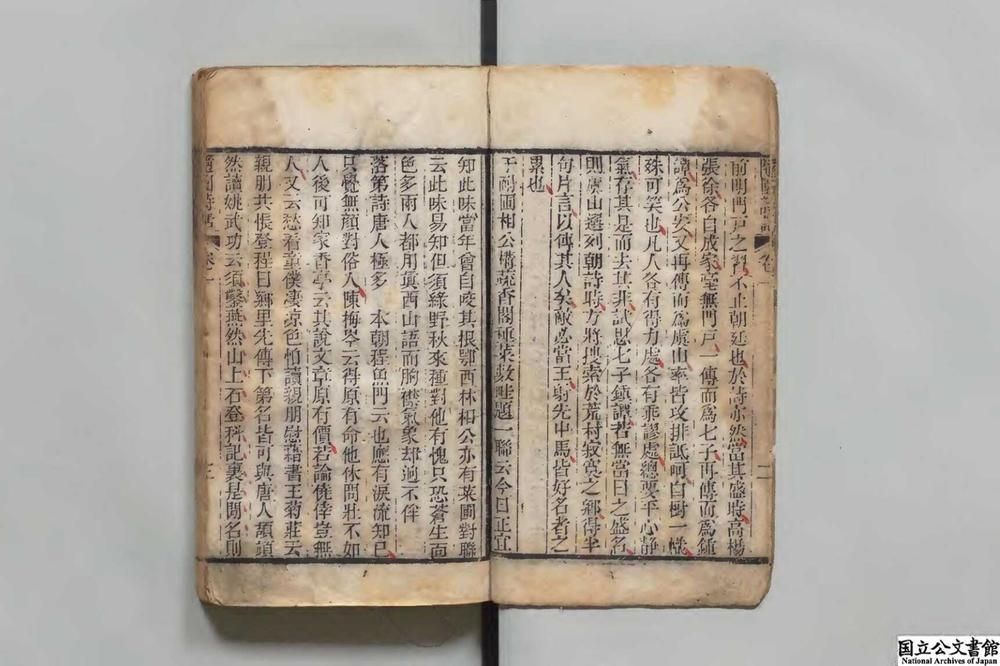 隨園詩話 卷一 二
前明門戸之習不止朝廷也於詩亦然當其盛時高楊
張徐各自成家毫無門戸一傳而爲七子再傳而爲鍾
譚爲公安又再傳而爲虞山率皆攻排詆呵自樹一幟
殊可笑也凡人各有得力處各有乖謬處總要平心靜
氣存其是而去其非試思七子鍾譚若無當日之盛名
則虞山選列朝詩時方將搜索於荒村寂寞之鄉得半
句片言以傳其人矣敵必當王射先中馬皆好名者之
累也
于耐圃相公構蔬香閣種菜數畦題一聯云今日正宜
知此味當年曾自咬其根鄂西林相公亦有菜圃對聯
云此味易知但須綠野秋來種對他有愧只恐蒼生面
色多兩人都用眞西山語而胸襟氣象却迥不侔
落第詩唐人極多 本朝程魚門云也應有淚流知己
只覺無顔對俗人陳梅岑云得原有命他休問壯不如
人後可知家香亭云共說文章原有價若論僥倖豈無
人又云愁看童僕凄涼色怕讀親朋慰藉書王菊莊云
親朋共悵登程日鄉里先傳下第名皆可與唐人頡頏
然讀姚武功云須鑿燕然山上石登科記裏是閑名則
隨園詩話 卷一 三
国立公文書館
National Archives of Japan